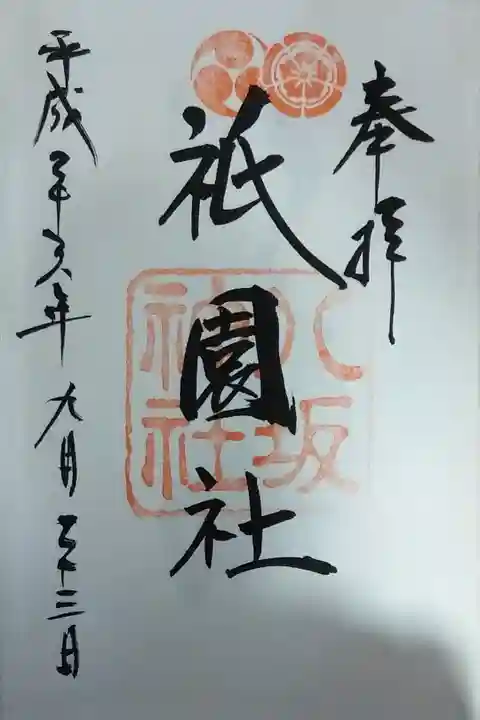 奉拝
祇園社
八坂
神社
平成二十六年九月二十三日